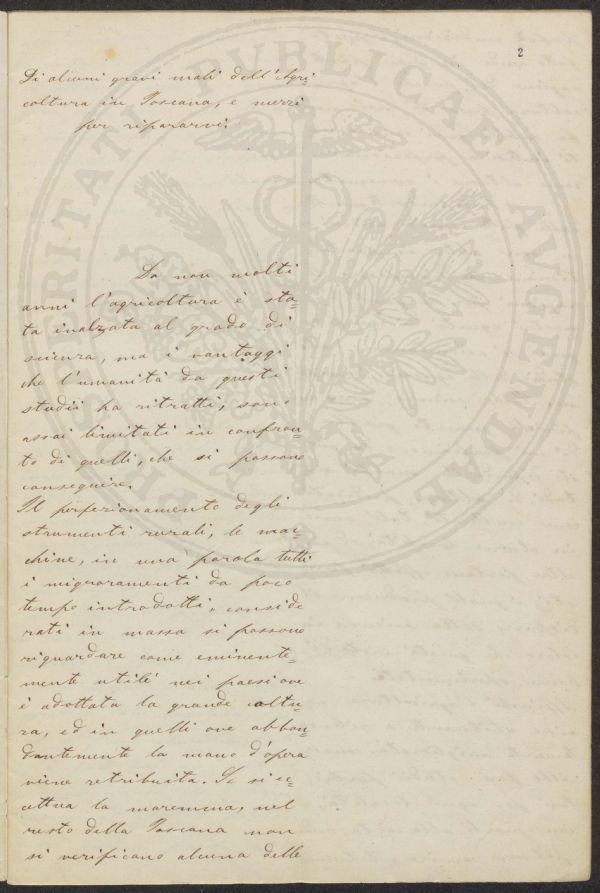 2
Di alcuni gravi mali dell'Agri
coltura in Toscana, e mezzi
per ripararvi.
Da non molti
anni l'agricoltura è sta=
ta inalzata al grado di
scienza, ma i vantaggi
che l'umanità da questi
studii ha ritratti, sono
assai limitati in confron=
to di quelli, che si possono
conseguire.
Il perfezionamento degli
strumenti rurali, le mac=
chine, in una parola tutti
i miglioramenti da poco
tempo introdotti, conside
rati in massa si possono
riguardare come eminente=
mente utili nei paesi ove
è adottata la grande coltu=
ra, ed in quelli ove abbon=
dantemente la mano d'opera
viene retribuita. Se si ec=
cettua la maremma, nel
resto della Toscana non
si verificano alcuna delle
PROSPERITATI PUBLICAE AUGENDAE